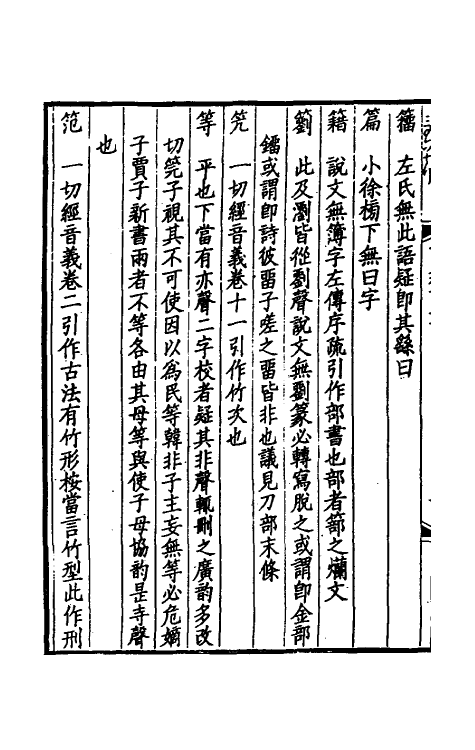 籒 左氏無此語疑卽其繇曰
篇 小徐榜下無曰字
籍 說文無簿字左傳序疏引作部書也部者篰之爛文
籔 此及瀏皆從劉聲說文無劉篆必轉寫脫之或謂卽金部
鐂或謂卽詩彼畱子嗟之畱皆非也議見刀部末條
笐 一切經音義卷十一引作竹次也
等 平也下當有亦聲二字校者疑其非聲輒刪之廣韵多改
切管子視其不可使因以爲民等韓非子主妾無等必危嫡
子賈子新書兩者不等各由其母等與使子母協韵是寺聲
也
笵 一切經音義卷二引作古法有竹形桉當言竹型此作刑